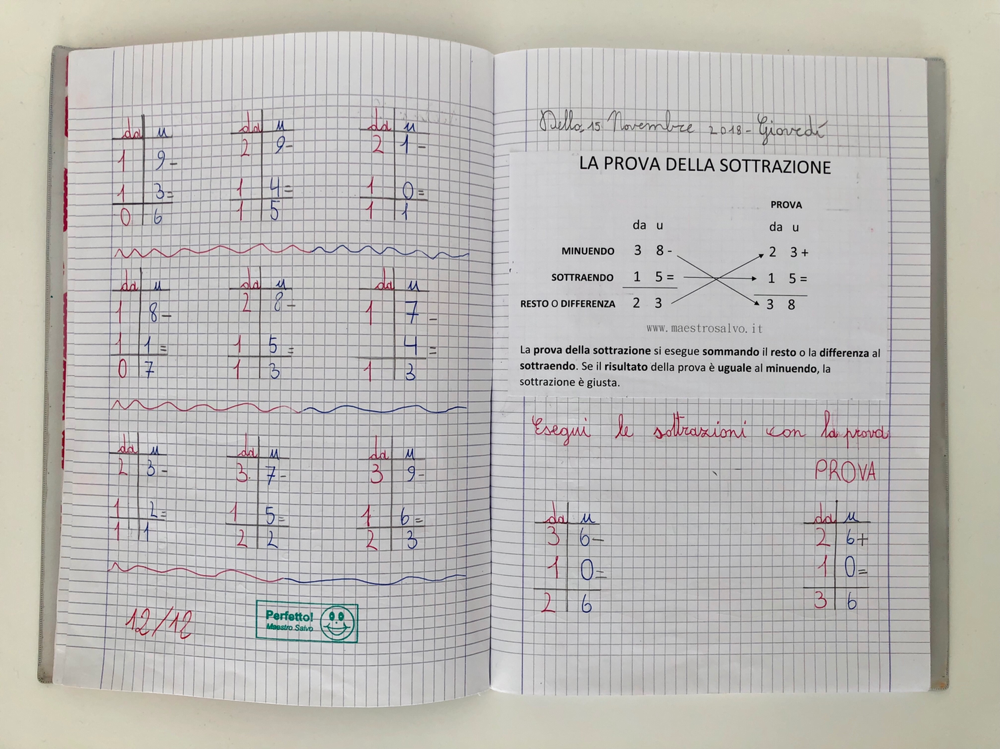 da u da u da u
1 9- 2 9- 2 1-
1 3= 1 4= 1 0=
0 6 1 5 1 1
da u da u da u
1 8- 2 8- 1 7-
1 1= 1 5= 4=
0 7 1 3 1 3
da u da u da u
2 3- 3 7- 3 9-
1 2= 1 5= 1 6=
1 1 2 2 2 3
12/12
Perfetto!
Maestro Salvo
15 Novembre 2018 - Giovedí
LA PROVA DELLA SOTTRAZIONE
PROVA
da u da u
MINUENDO 3 8 - 2 3 +
SOTTRAENDO 1 5 = 1 5 =
RESTO O DIFFERENZA 2 3 3 8
www.maestrosalvo.it
La prova della sottrazione si esegue sommando il resto o la differenza al
sottraendo. Se il risultato della prova è uguale al minuendo, la
sottrazione è giusta.
Esegui le sottrazioni con la prova
PROVA
da u da u
3 6- 2 6+
1 0= 1 0=
2 6 3 6